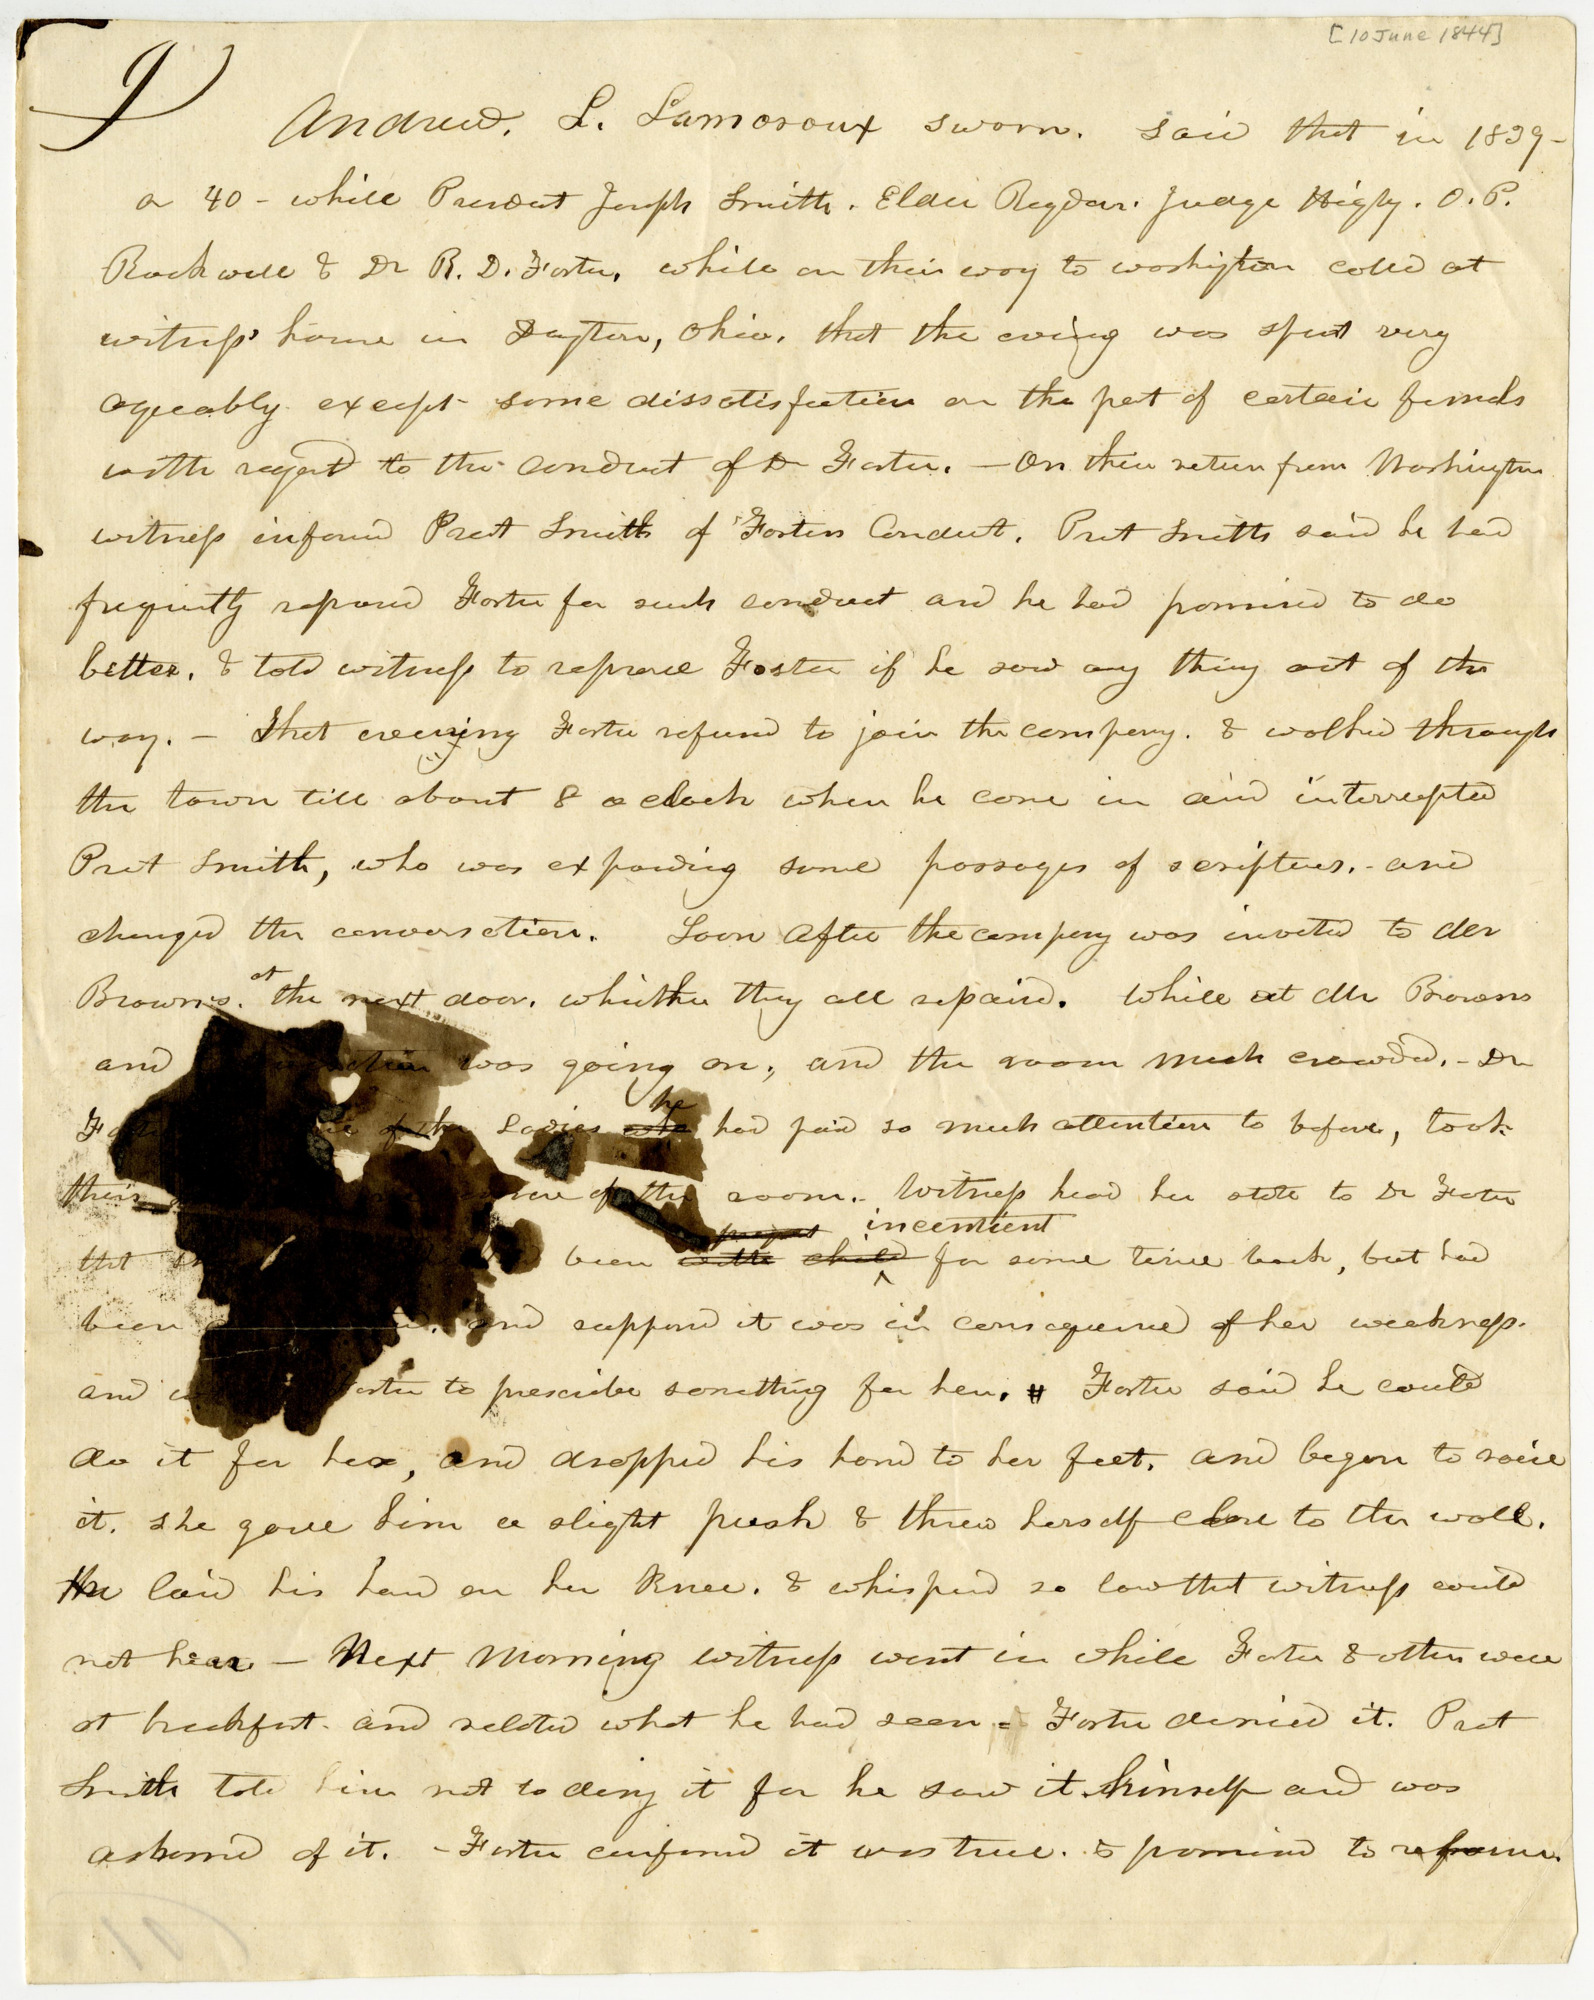 [10 June 1844]
9
Andrew. L. Lamoroux sworn. said that in 1839-
or 40 - while Presedent Joseph Smith. Elder Rigdon. Judge Higby. O. P.
Rockwell & Dr R. D. Foster, while on their way to washigton called at
witness' house in Dayton, Ohio. that the eveing was spent very
agreeably except some dissatisfaction on the part of certain fernds
with regard to the conduct of Dr Foster. — On their return from Washington
witness infomd Prest Smith of Fosters Conduct. Prest Smith said he had
frequently repovd Foster for such conduct and he had promised to do
better. & told witness to reprove Foster if he saw any thing out of the
way. — That evening Foster refused to join the company. & walked through
the town till about 8 o clock when he came in and interrupted
Prest Smith, who was expounding some passages of scripture. - and
changed the conversation. Soon after the company was invited to Mr
Browns. at the next door. whither they all repaird. While at Mr Browns
and was going on, and the room much crowded. - Dr
of the Ladies he had paid so much attention to before, took
their of the room. - Witness head her state to Dr Foster
that been with child incentient for some time back, but had
been and supposd it was in consequence of her weakness.
and Foster to prescribe somethig for her. # Foster said he could
do it for her, and dropped his hand to her feet. and began to raise
it. she gave him a slight push & threw herself close to the wall.
He laid his hand on her Knee. & whisperd so low that witness could
not hear — Next Morning witness went in while Foster & others were
at breakfast. and related what he had seen - Foster denied it. Prest
Smith told him not to deny it for he saw it himself and was
ashamed of it. - Foster confessed it was true. & promised to reform.